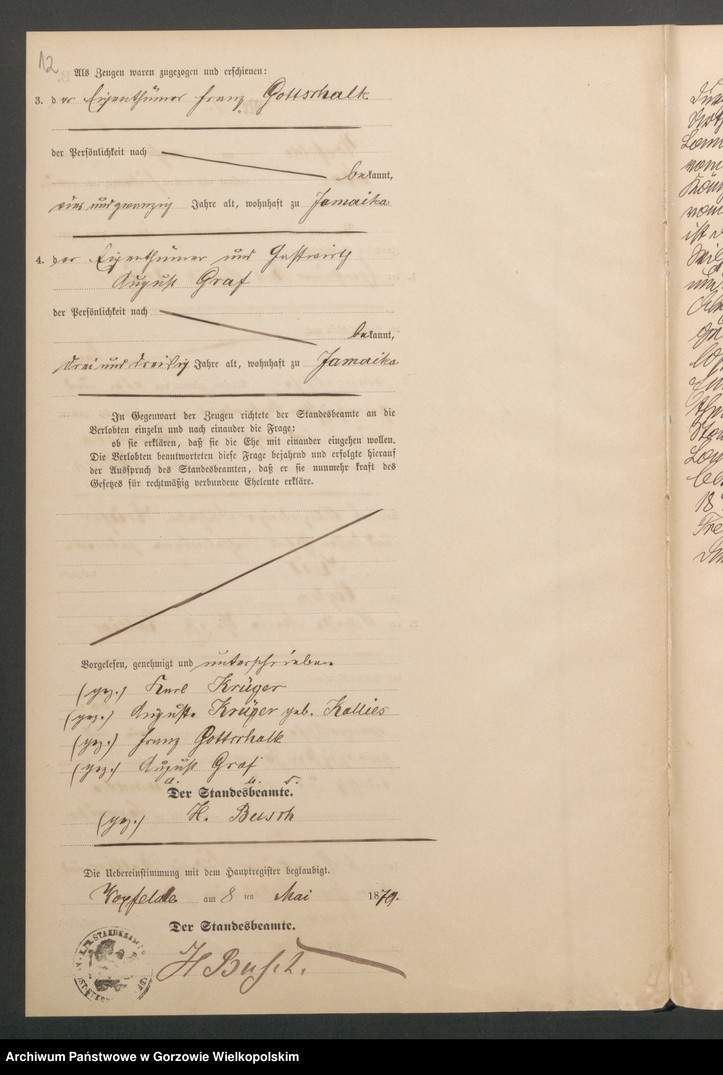 12
Als Zeugen waren zugezogen und erschienen:
3. der Eigenthümer Franz Gottschalk
der Persönlichkeit nach
bekannt,
undzwanzig Jahre alt, wohnhaft zu Jamaika
4. der Eigenthümer und Gastwirth
August Graf
der Persönlichkeit nach
bekannt,
drei und dreißig Jahre alt, wohnhaft zu Jamaika
In Gegenwart der Zeugen richtete der Standesbeamte an die
Verlobten einzeln und nach einander die Frage:
ob sie erklären, daß sie die Ehe mit einander eingehen wollen.
Die Verlobten beantworteten diese Frage bejahend und erfolgte hierauf
der Ausspruch des Standesbeamten, daß er sie nunmehr kraft des
Gesetzes für rechtmäßig verbundene Eheleute erkläre.
Vorgelesen, genehmigt und unterschrieben
(gez.) Karl Krüger
(gez.) Auguste Krüger geb. Kallies
(gez.) Franz Gottschalk
(gez.) August Graf
a. u. s.
Der Standesbeamte.
(gez.) H. Busch
Die Uebereinstimmung mit dem Hauptregister beglaubigt.
am 8 ten Mai 1879.
Der Standesbeamte.
H Busch.
Archiwum Państwowe w Gorzowie Wielkopolskim